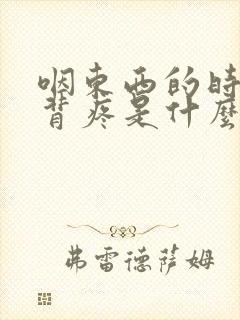 咽东西的时
背疼是什麼
弗雷德萨姆